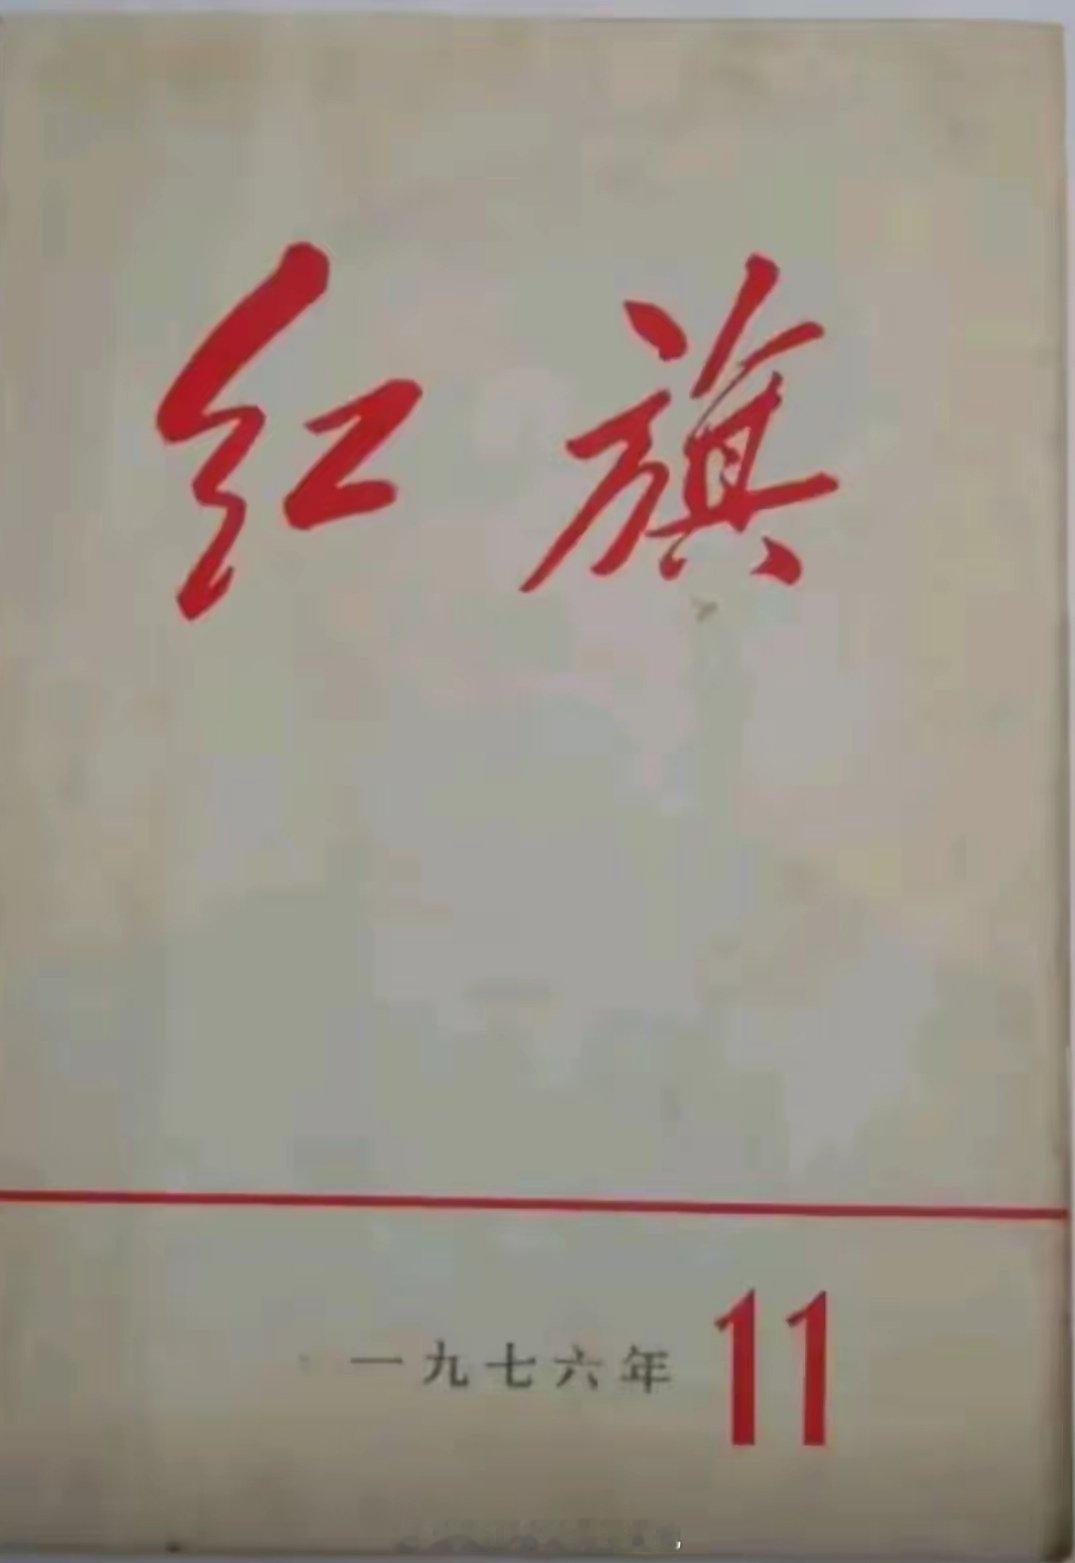 红旗
一九七六年 11